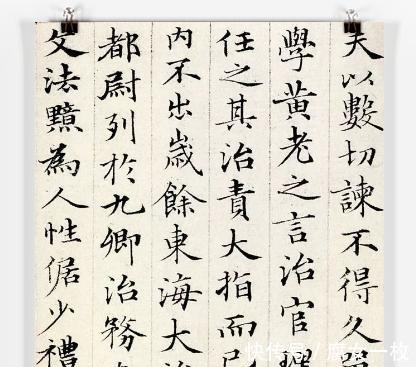 夫以數切諫不得久
學黃老之言治官
任之其治責大指而
內不出歲餘東海大
都尉列於九卿治務
文法黯為人性倨少禮
快传号 / 腐女一枚